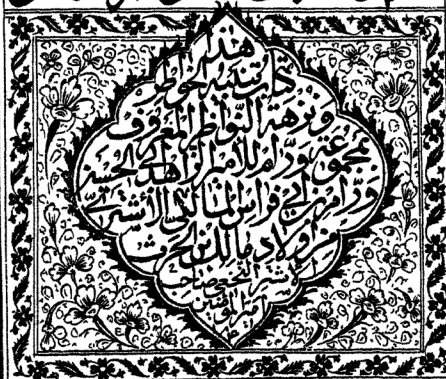 هذا
كتاب تنبيه الخواطر
و نزهة النواظر المعروف
بمجموعة ورّام للامير الزاهد ابي الحسين
ورّام بن ابي فراس المالكي الاشتري
من اولاد مالك بن الحارث
الاشتر النخعي صاحب
امير المؤمنين